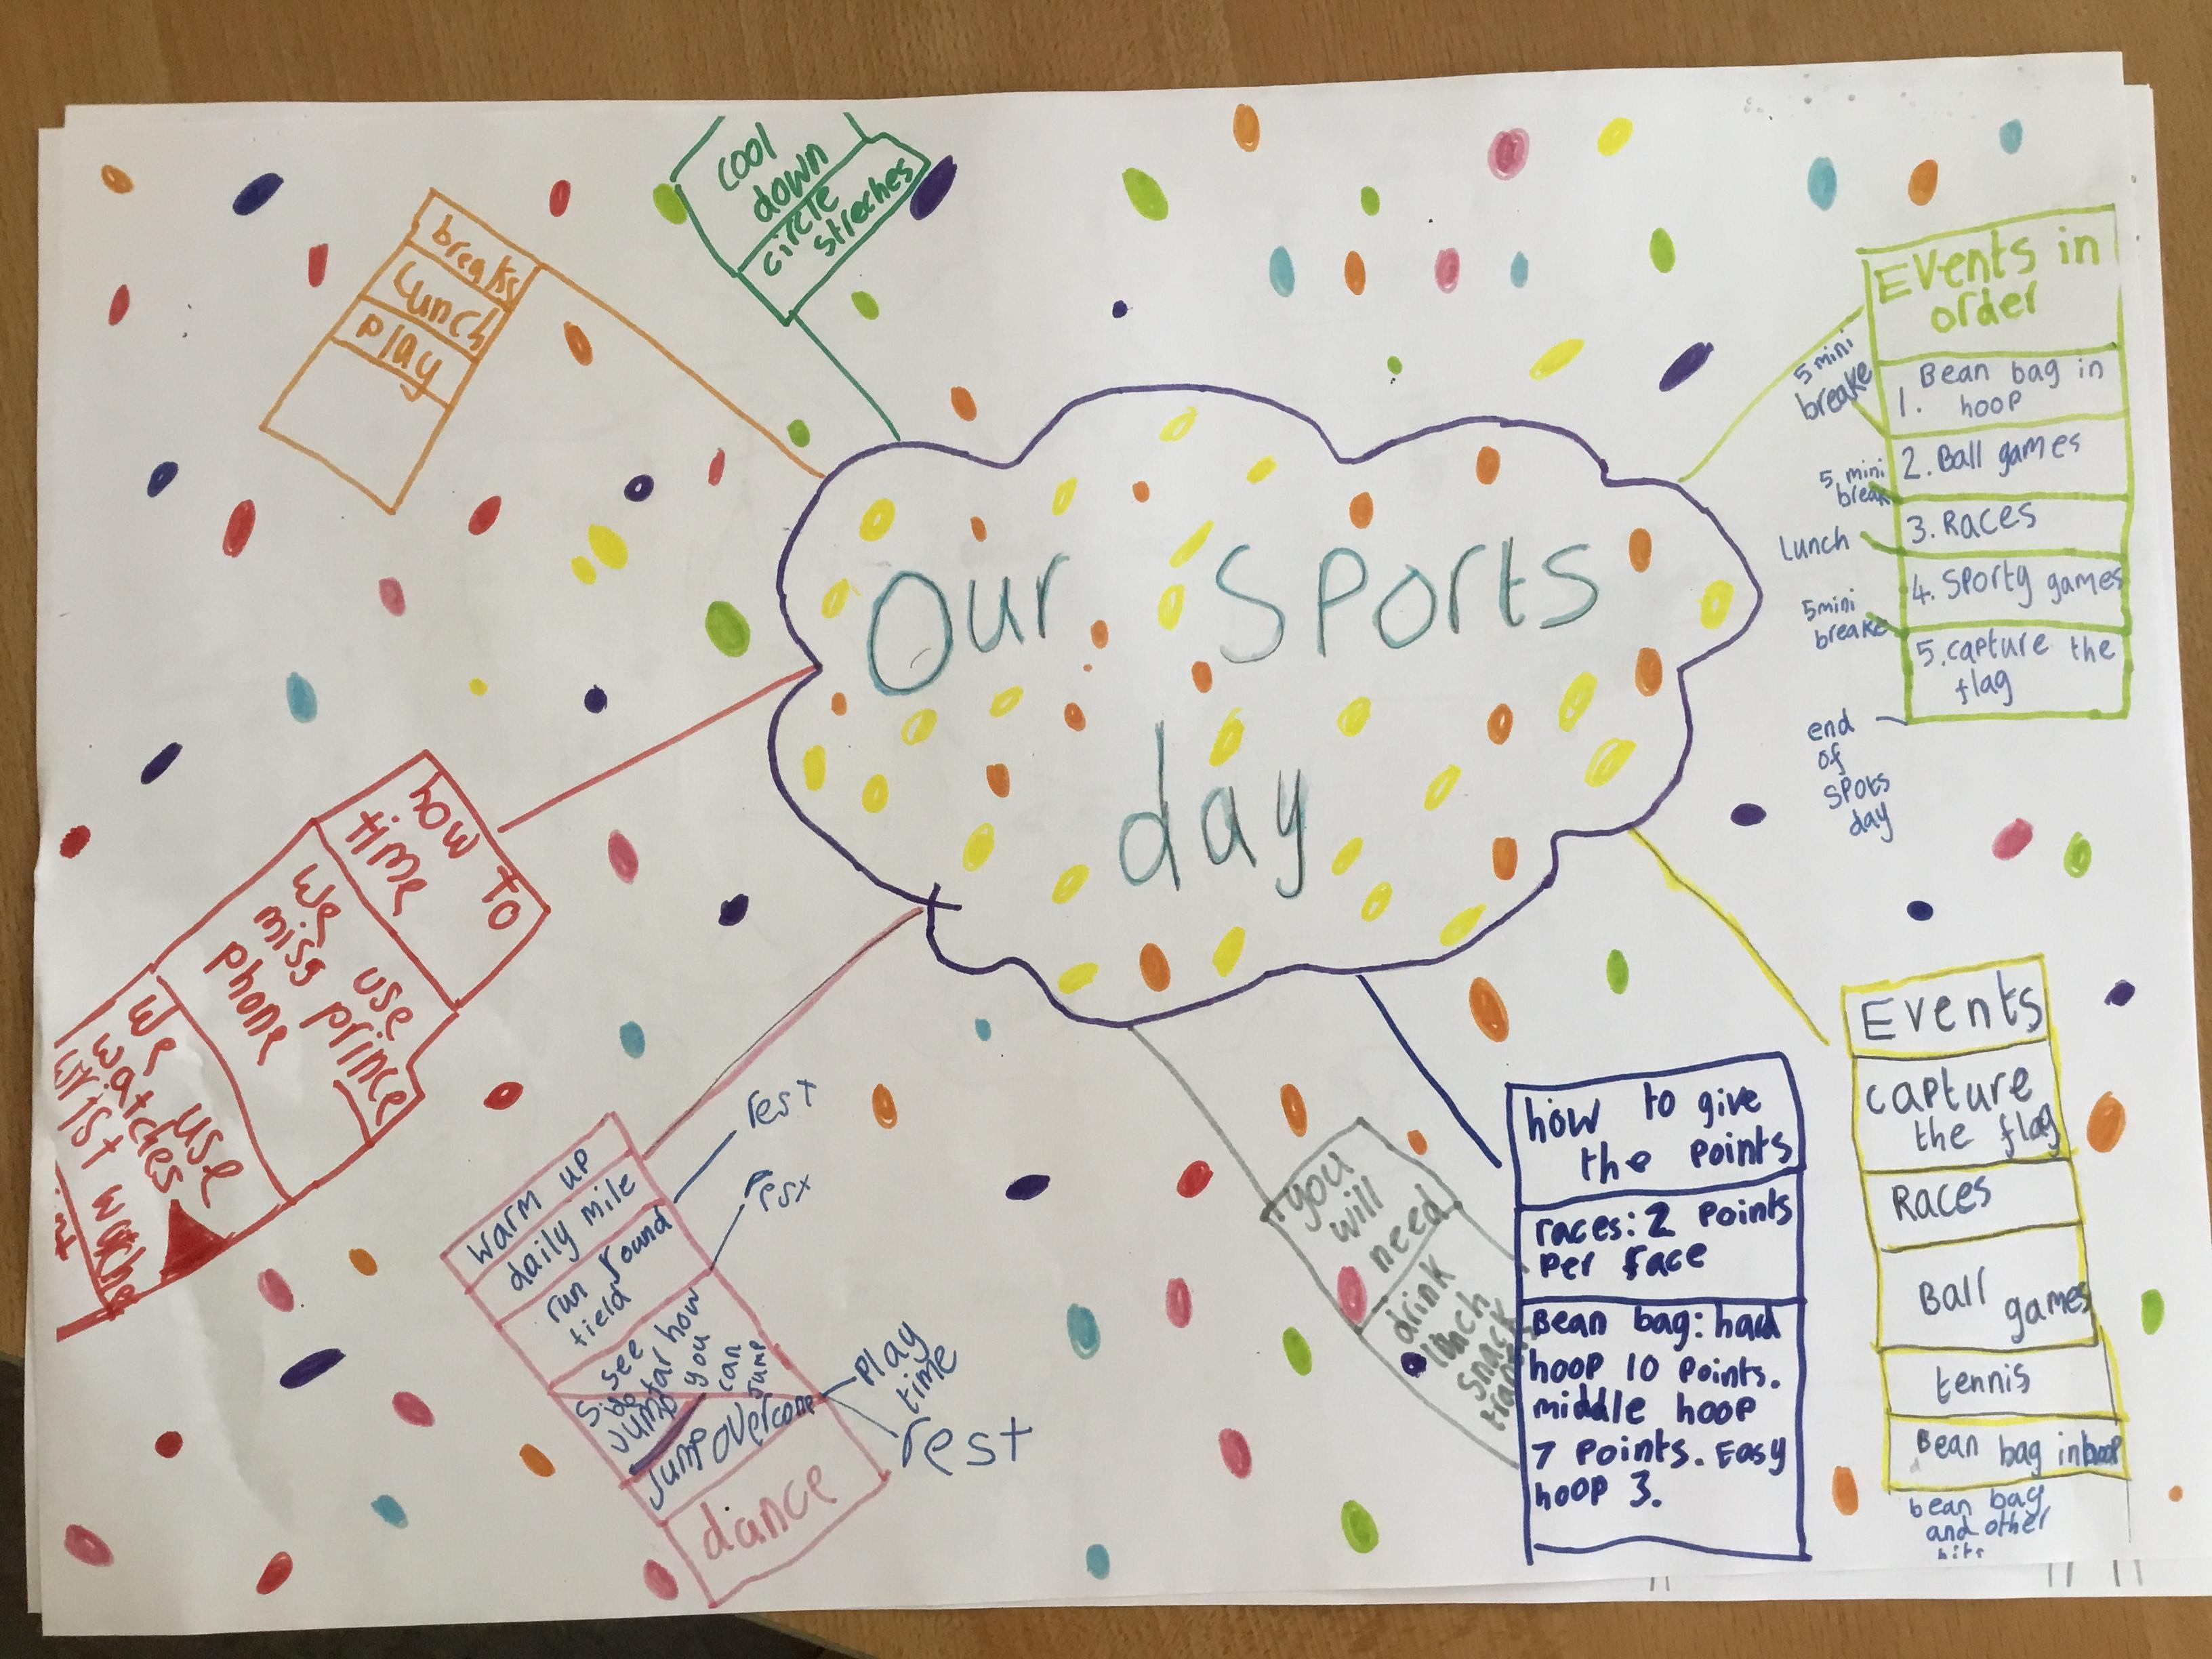 Our Sports
day
cool
down
circle
streches
breaks
Lunch
play
Events in
order
1. Bean bag in
hoop
2. Ball games
3. Races
4. Sporty games
5. capture the
flag
5 mini
breake
5 mini
break
Lunch
5 mini
breake
end
of
spots
day
how to
time
We use
miss prince
phone
We use
watches
wrist watche
warm up
daily mile
run round
field
see
how
far
you
can
jump
jump over cone
dance
rest
rest
play
time
rest
you
will
need
drink
lunch
snack
how to give
the points
races: 2 points
per face
Bean bag: hard
hoop 10 points.
middle hoop
7 points. Easy
hoop 3.
Events
capture
the flag
Races
Ball
games
tennis
Bean bag in hoop
bean bag
and other